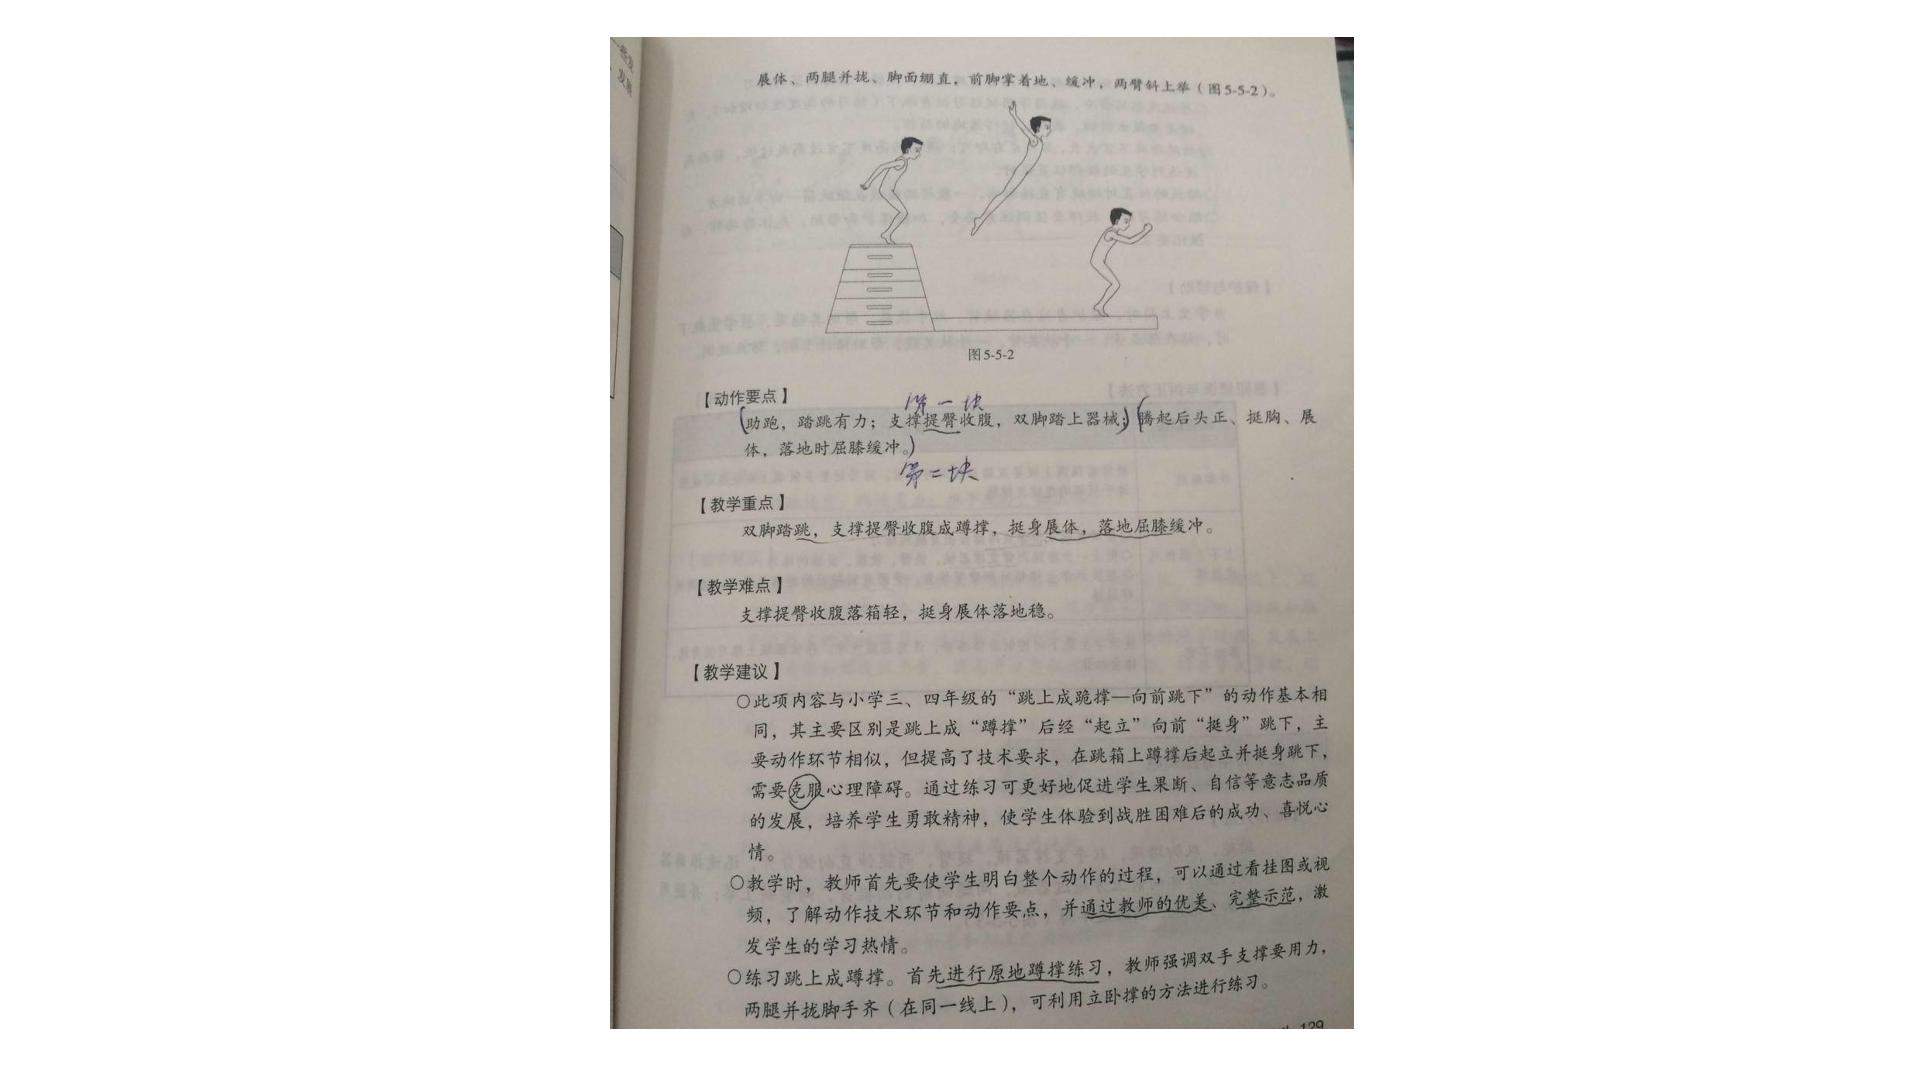 展体、两腿并拢、脚面绷直，前脚掌着地、缓冲，两臂斜上举（图5-5-2）。
图5-5-2
【动作要点】
第一块
助跑，踏跳有力；支撑提臀收腹，双脚踏上器械；腾起后头正、挺胸、展
体，落地时屈膝缓冲。
第二块
【教学重点】
双脚踏跳，支撑提臀收腹成蹲撑，挺身展体，落地屈膝缓冲。
【教学难点】
支撑提臀收腹落箱轻，挺身展体落地稳。
【教学建议】
○此项内容与小学三、四年级的“跳上成跪撑—向前跳下”的动作基本相
同，其主要区别是跳上成“蹲撑”后经“起立”向前“挺身”跳下，主
要动作环节相似，但提高了技术要求，在跳箱上蹲撑后起立并挺身跳下，
需要克服心理障碍。通过练习可更好地促进学生果断、自信等意志品质
的发展，培养学生勇敢精神，使学生体验到战胜困难后的成功、喜悦心
情。
○教学时，教师首先要使学生明白整个动作的过程，可以通过看挂图或视
频，了解动作技术环节和动作要点，并通过教师的优美、完整示范，激
发学生的学习热情。
○练习跳上成蹲撑。首先进行原地蹲撑练习，教师强调双手支撑要用力，
两腿并拢脚手齐（在同一线上），可利用立卧撑的方法进行练习。
129